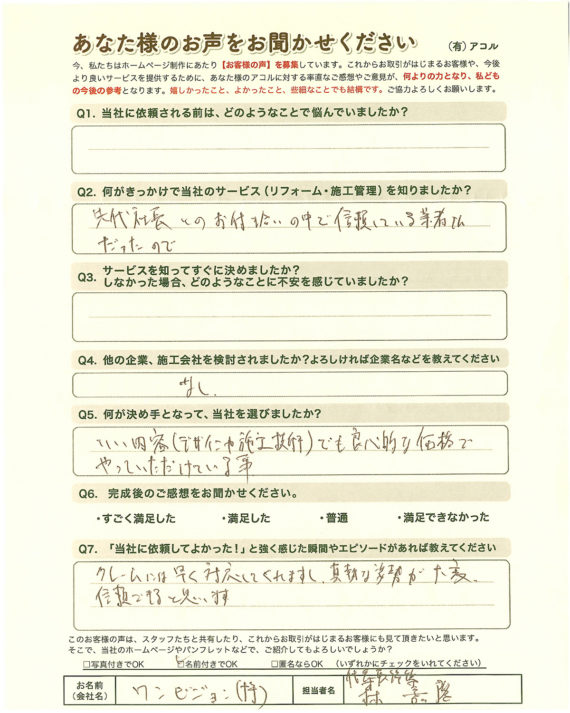 あなた様のお声をお聞かせください
(有)アコル
今、私たちはホームページ制作にあたり【お客様の声】を募集しています。これからお取引がはじまるお客様や、今後
より良いサービスを提供するために、あなた様のアコルに対する率直なご感想やご意見が、何よりの力となり、私ども
の今後の参考となります。嬉しかったこと、よかったこと、些細なことでも結構です。ご協力よろしくお願いします。
Q1. 当社に依頼される前は、どのようなことで悩んでいましたか?
Q2. 何がきっかけで当社のサービス(リフォーム・施工管理)を知りましたか?
先代社長とのお付き合いの中で信頼している業者さん
だったので
Q3. サービスを知ってすぐに決めましたか?
しなかった場合、どのようなことに不安を感じていましたか?
Q4. 他の企業、施工会社を検討されましたか?よろしければ企業名などを教えてください
なし.
Q5. 何が決め手となって、当社を選びましたか?
いい内容(デザインや施工技術)でも良心的な価格で
やっていただけている事
Q6. 完成後のご感想をお聞かせください。
・すごく満足した ・満足した ・普通 ・満足できなかった
Q7. 「当社に依頼してよかった!」と強く感じた瞬間やエピソードがあれば教えてください
クレームには早く対応してくれますし、真摯な姿勢が大変、
信頼できると思います
このお客様の声は、スタッフたちと共有したり、これからお取引がはじまるお客様にも見て頂きたいと思います。
そこで、当社のホームページやパンフレットなどで、ご紹介してもよろしいでしょうか?
□写真付きでOK ☑名前付きでOK □匿名ならOK (いずれかにチェックをいれてください)
お名前
(会社名)
ワンビジョン(株)
担当者名
林